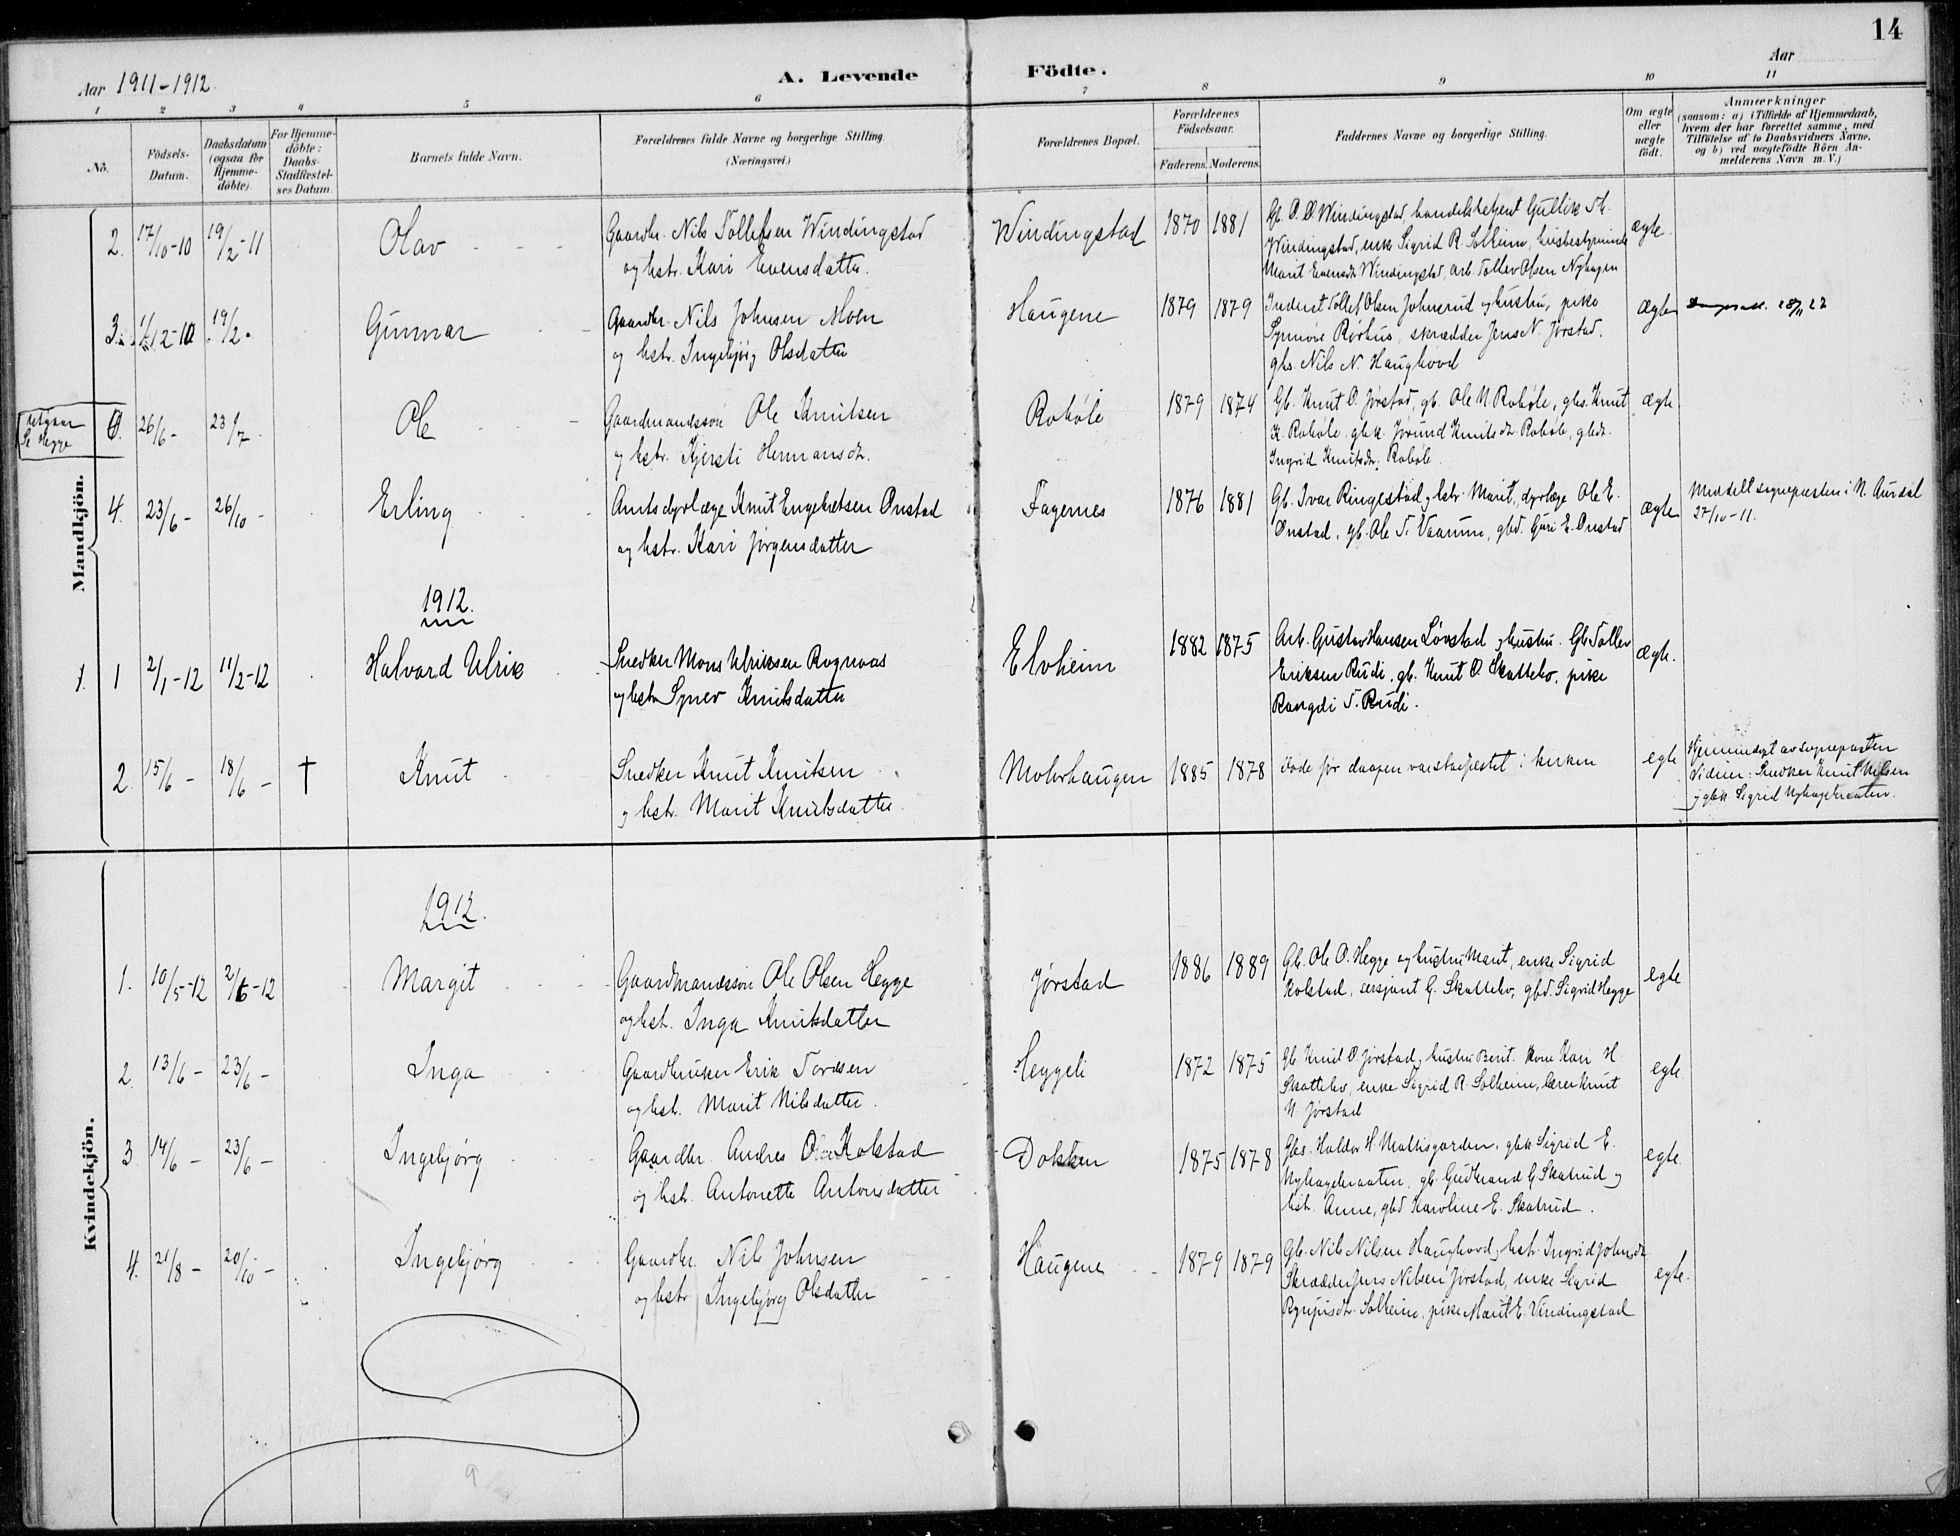 14
Aar 1911-1912.
A. Levende Födte.
Aar
1 2 3 4 5 6 7 8 9 10 11
Nö.
Födsels-Datum.
Daabsdatum (ogsaa for Hjemme-döbte).
For Hjemme-döbte: Daabs-Stadfæstel-ses Datum.
Barnets fulde Navn.
Forældrenes fulde Navne og borgerlige Stilling.
(Næringsvei.)
Forældrenes Bopæl.
Forældrenes Födselsaar.
Faderens. Moderens.
Faddernes Navne og borgerlige Stilling.
Om ægte eller uægte födt.
Anmærkninger
(saasom: a) i Tilfælde af Hjemmedaab, hvem der har forrettet samme, med Tilföielse af to Daabsvidners Navne, og b) ved uægtefödte Börn An-melderens Navn m. V.)
Mandkjön.
2. 17/10-10 19/2-11 Olav
Gaardbr. Nils Tollefsen Windingstad
og hstr. Kari Evensdatter.
Windingstad 1870 1881
Gb. O. O. Windingstad, handelsbetjent Gullik
Windingstad, enke Sigrid R. Solheim, husbestyrerinde
Marit Evensdtr Windingstad, arb. Tollev Olsen Nyhagen
ægte.
3. 1/12-10 19/2. Gunnar
Gaardbr. Nils Johnsen Moen
og hstr. Ingebjörg Olsdatter
Haugene 1879 1879
Inderst Tollef Olsen Johnsrud og hustru, pike
Synnöve Rörhus, skrædder Jens N. Jørstad,
gbs. Nils N. Haughovd
ægte 28/11 22
utgaar Se Hegge
26/6 - 23/7 Ole
Gaardmandssön Ole Knutsen
og hstr. Kjersti Hermansdtr.
Roböle 1879 1874
Gb. Knut O. Jørstad, gb. Ole N. Roböle, gbs. Knut
K. Roböle, gbk. Jørund Knutsdtr. Roböle, gbdt.
Ingrid Knutsdtr. Roböle
ægte
4. 23/6 - 26/10 - Erling
Amtsdyrlæge Knut Engebretsen Onstad
og hstr. Kari Jørgensdatter
Fagernes 1876 1881
Gb. Ivar Ringestad og hstr. Marit, dyrlæge Ole E.
Onstad, gb. Ole T. Vaarum, gbd. Guri E. Onstad
ægte
Meddelt sognepresten i N. Aurdal
27/10-11.
1912.
1. 1 2/1-12 11/2-12 Halvard Ulrik
Snedker Mons Ulriksen Rognaas
og hstr Synev Knutsdatter
Elvheim 1882 1875
Arb. Gustav Hansen Lövstad og hustru. Gb Tollev
Eriksen Rudi, gb. Knut O. Skattebo, pike
Rangdi T. Rudi.
ægte.
2. 15/6 - 18/6 - † Knut
Snedker Knut Knutsen
og hstr. Marit Knutsdatter.
Mohrhaugen 1885 1878
döde før daapen var stadfestet i kirken
egte
Hjemmedøpt av sognepresten
Vidner: Snedker Knut Nilsen
og gbk. Sigrid Nyhagebraaten.
Kvindekjön.
1912.
1. 10/5-12 2/6-12 Margit
Gaardmandssön Ole Olsen Hegge
og hstr. Inga Knutsdatter
Jørstad 1886 1889
Gb. Ole O. Hegge og hustru Marit, enke Sigrid
Kolstad, sersjant G. Skattebo, gbd. Sigrid Hegge
egte
2. 13/6 - 23/6 - Inga
Gaardbruker Erik Tordsen
og hst. Marit Nilsdatter.
Heggeli 1872 1875
Gb. Knut O. Jørstad og hustru Berit. Kone Kari H.
Skattebo, enke Sigrid R. Solheim, lærer Knut
N. Jørstad
egte.
3 14/6 - 23/6 - Ingebjørg
Gaardbr. Andres Kolstad
og hst. Antonette Antonsdatter
Dokken 1875 1878
Gbs. Haldor H Mathisgarden, gbk Sigrid E.
Nyhagebraaten, gb. Gudbrand G. Skatrud og
hst. Anne, gbd Karoline E. Skatrud.
egte.
4. 21/8 - 20/10 - Ingebjørg
Gaardbr. Nils Johnsen
og hstr. Ingebjørg Olsdatter
Haugene 1879 1879
Gb. Nils Nilsen Haughovd og hst. Ingrid Johnsdtr.
Skrædder Jens Nilsen Jørstad, enke Sigrid
Solheim, pike Marit E. Vindingstad
egte.
9